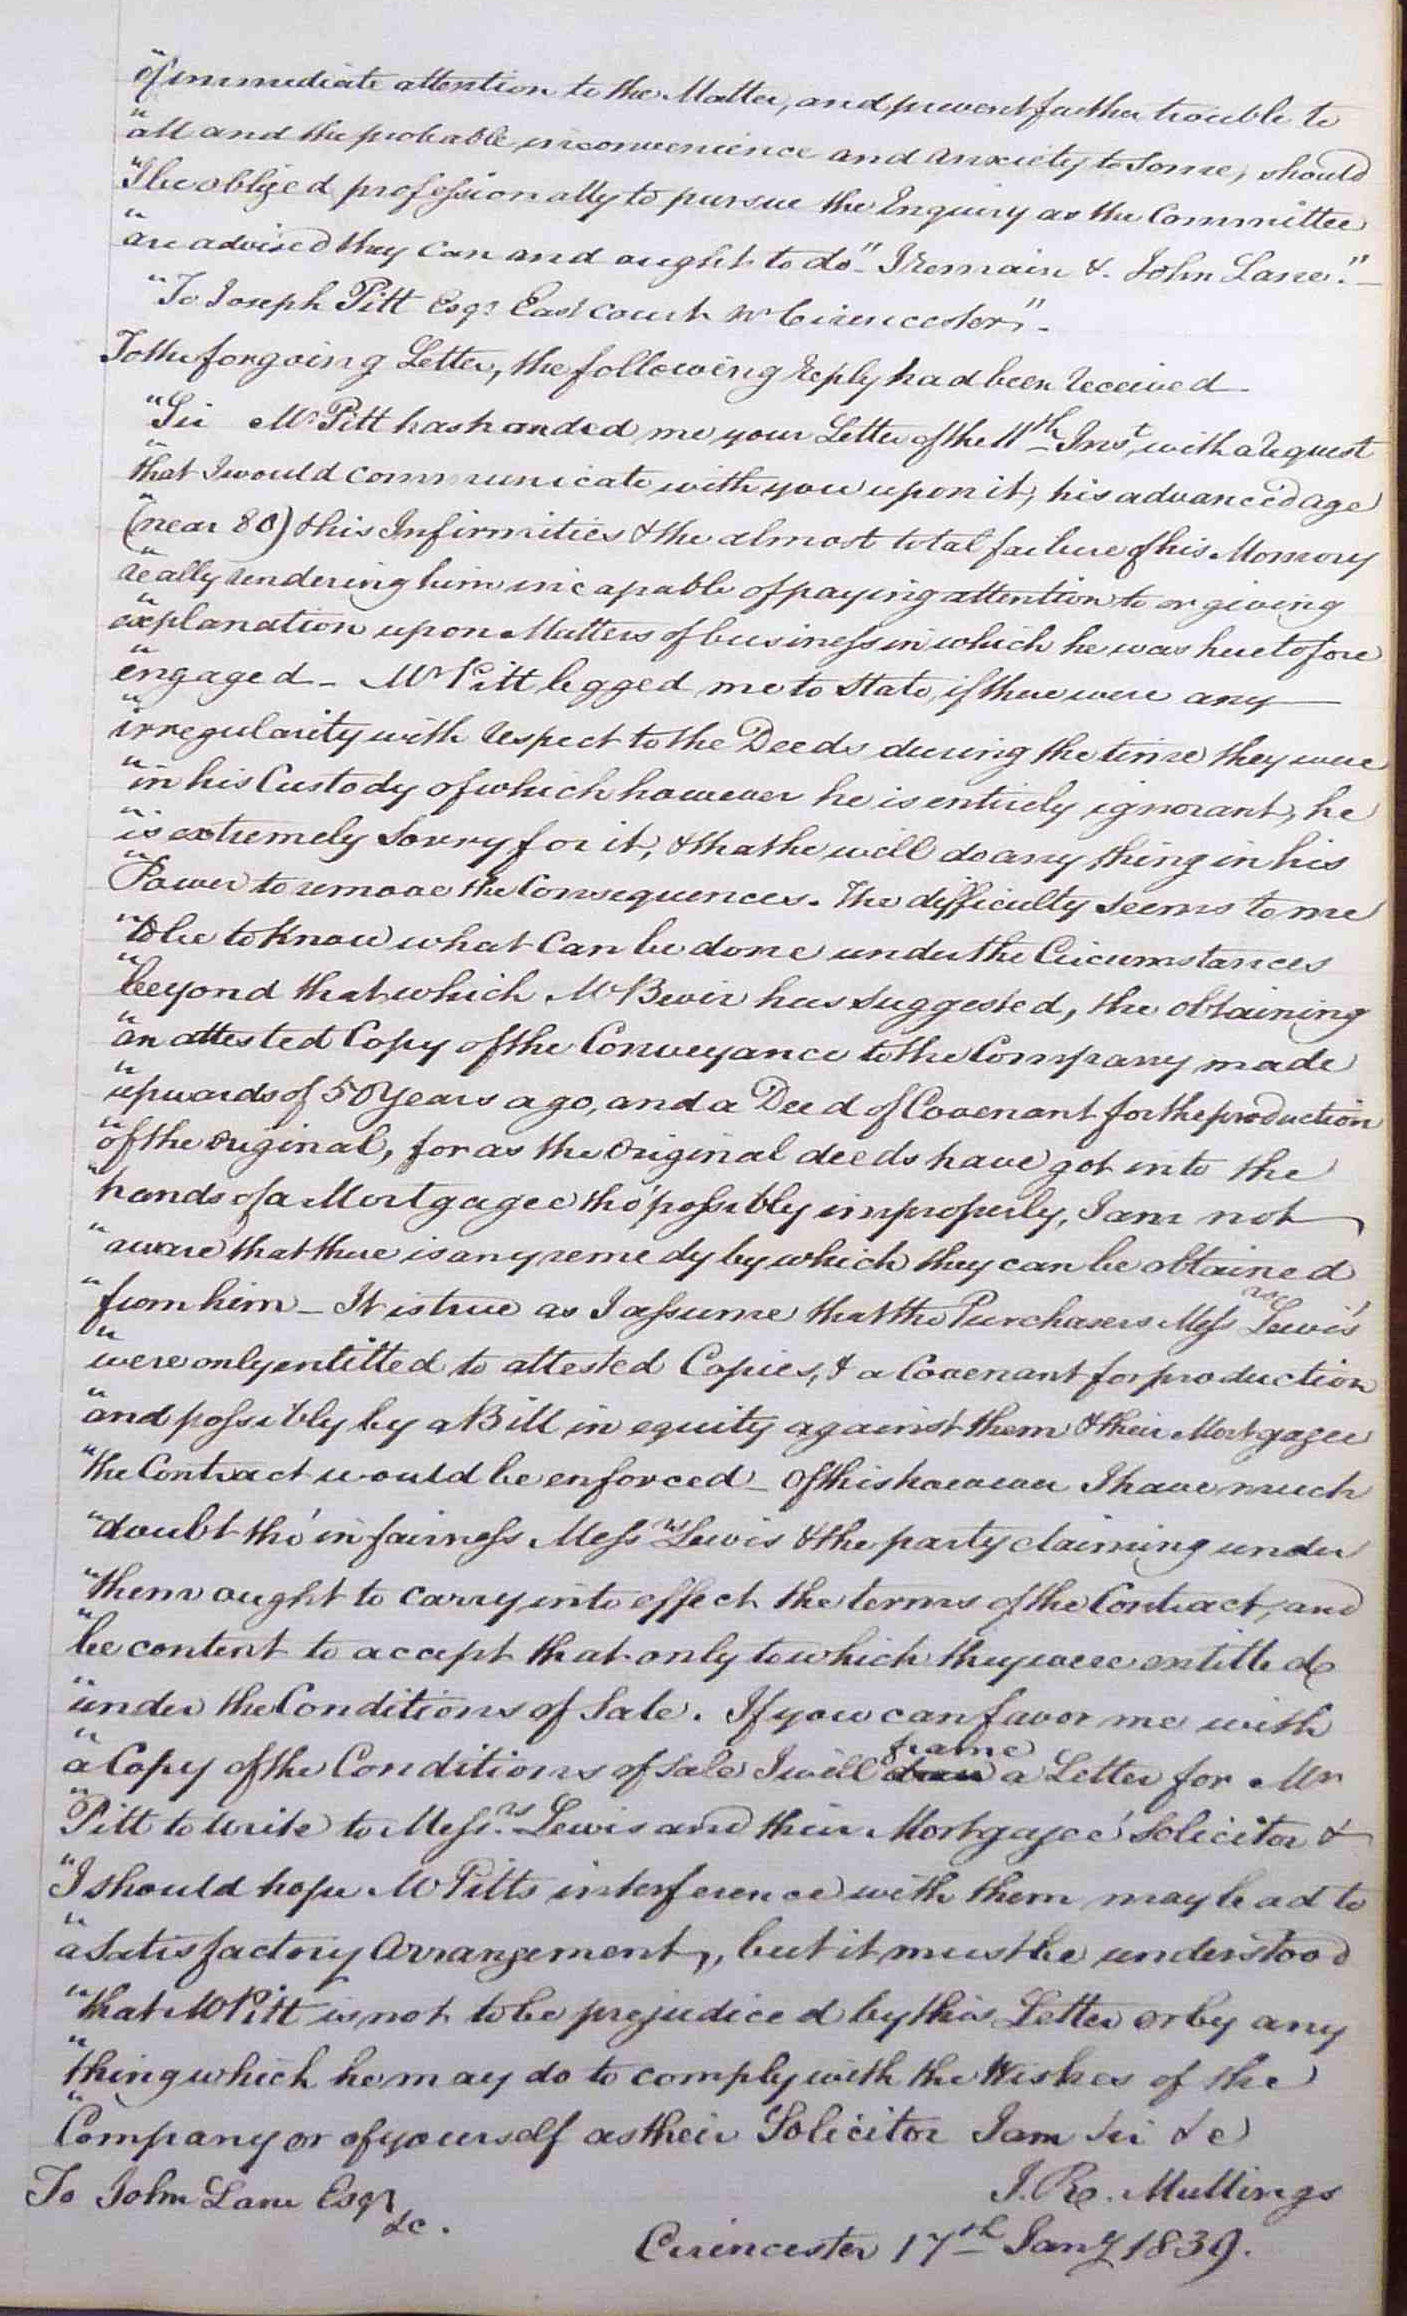 "of immediate attention to the Matter, and prevent farther trouble to
"all and the probable inconvenience and anxiety to some, should
"I be obliged professionally to pursue the Inquiry as the Committee
"are advised they can and ought to do" I remain &. John Lane." –
"To Joseph Pitt Esqr. East court nr Cirencester," –
To the forgoing Letter, the following reply had been received –
"Sir Mr Pitt has handed me your Letter of the 11th Inst, with a request
"that I would communicate with you upon it, his advanced age
"(near 80) & his Infirmities & the almost total failure of his Momory
"really rendering him incapable of paying attention to or giving
"explanation upon Matters of business in which he was heretofore
"engaged – Mr Pitt begged me to state, if there were any
"irregularity with respect to the Deeds during the time they were
"in his Custody of which however he is entirely ignorant, he
"is extremely sorry for it, & that he will do any thing in his
"Power to remove the Consequences. The difficulty seems to me
"to be to know what can be done under the Circumstances
"beyond that which Mr Bevir has suggested, the obtaining
"an attested Copy of the Conveyance to the Company made
"upwards of 50 Years ago, and a Deed of Covenant for the production
"of the original, for as the original deeds have got into the
"hands of a Mortgagee tho' possibly improperly, I am not
"aware that there is any remedy by which they can be obtained
"from him – It is true as I assume that the Purchasers Messrs Lewis'
"were only entitled to attested Copies, & a Covenant for production
"and possibly by a Bill in equity against them & their Mortgagee
"the Contract would be enforced – Of this however I have much
"doubt tho' in fairness Messrs Lewis & the party claiming under
"them ought to carry into effect the terms of the Contract, and
"be content to accept that only to which they were entitled
"under the Conditions of Sale. If you can favor me with
"a Copy of the Conditions of sale I will frame a Letter for Mr
"Pitt to write to Messrs. Lewis and their Mortgagee' Solicitor &
"I should hope Mr Pitts interference with them may lead to
"a satisfactory Arrangement,, but it must be understood
"that Mr Pitt is not to be prejudiced by this Letter or by any
"thing which he may do to comply with the Wishes of the
"Company or of yourself as their Solicitor I am Sir &c
J. R. Mullings
To John Lane Esqr
&c.
Cirencester 17th Jany 1839.